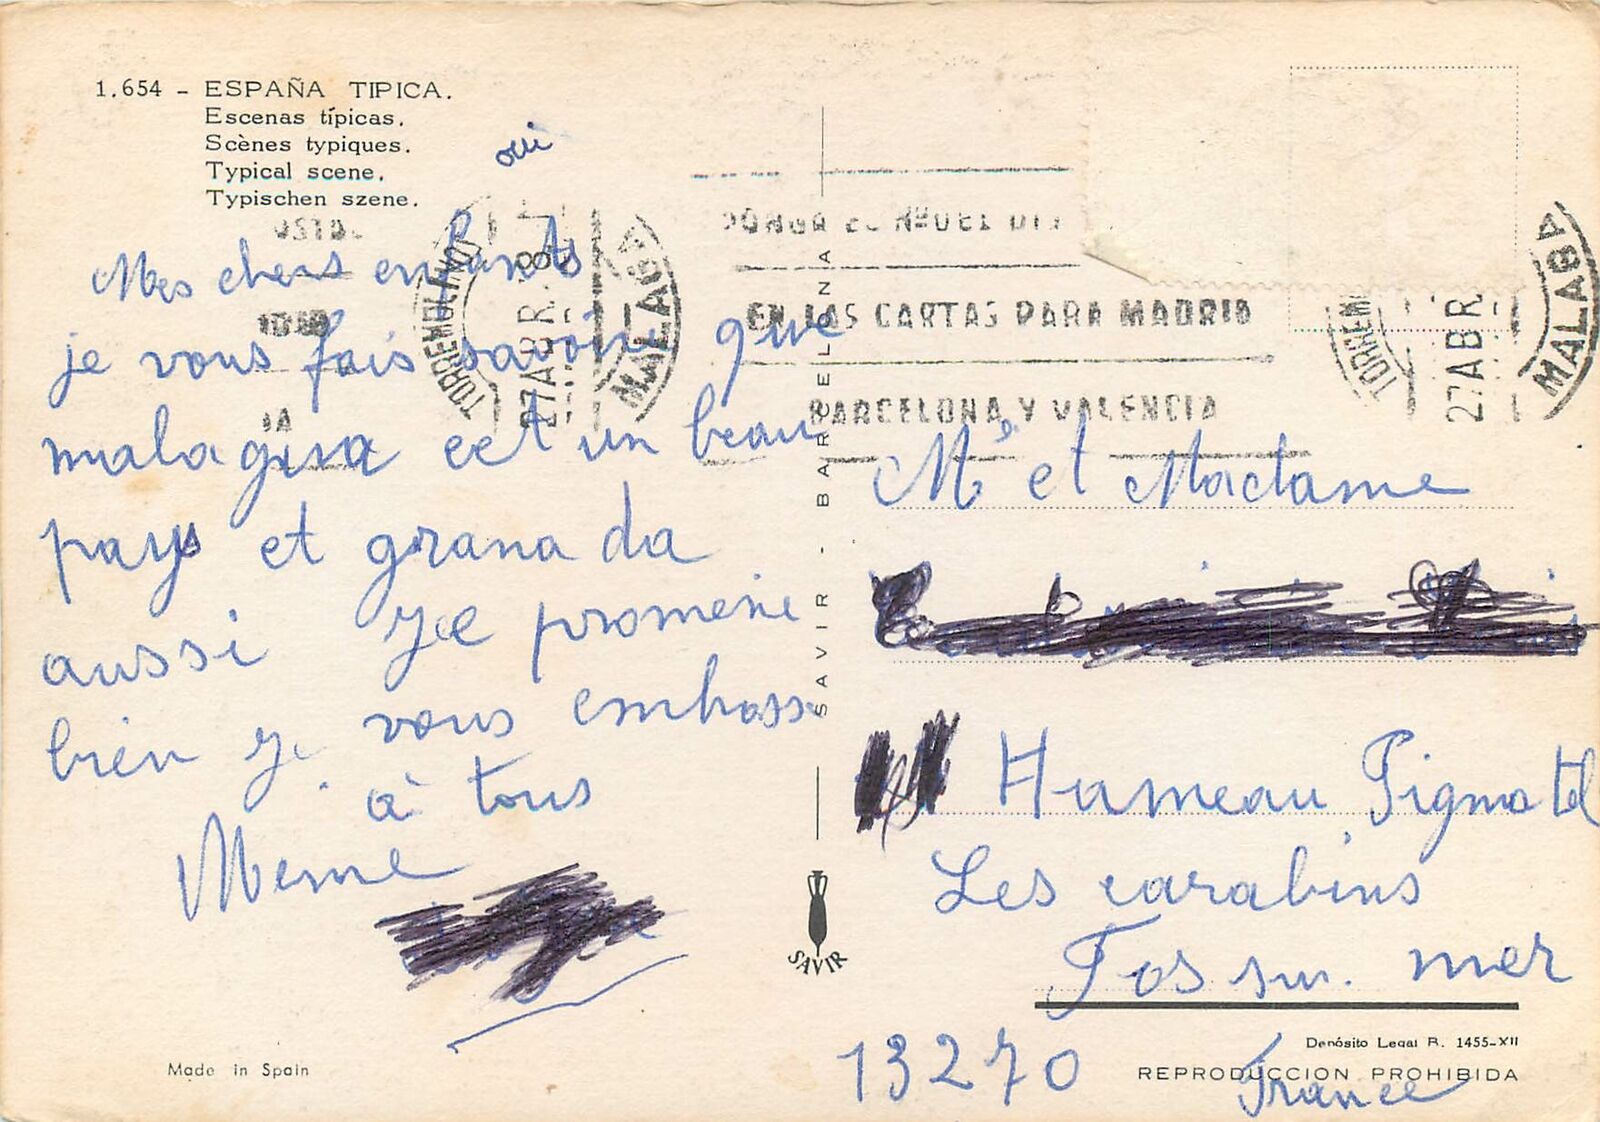 1.654 - ESPAÑA TIPICA.
Escenas típicas.
Scènes typiques.
Typical scene.
Typischen szene.
oui
Mes chers enfants
je vous fais savoir que
malaguia eet un beau
pays et grana da
aussi Je promene
bien Je vous embrass
à tous
Meme
Made in Spain
SAVIR - BARCELONA
SAVIR
TORREMOLINOS
27 ABR.
MALAGA
PONGA EL Nº DEL D.
EN LAS CARTAS PARA MADRID
BARCELONA Y VALENCIA
TORREM
27 ABR
MALAGA
Mr et Madame
Hameau Pigmatel
Les carabins
Fos sur. mer
13270
France
Depósito Legal B. 1455-XII
REPRODUCCION PROHIBIDA